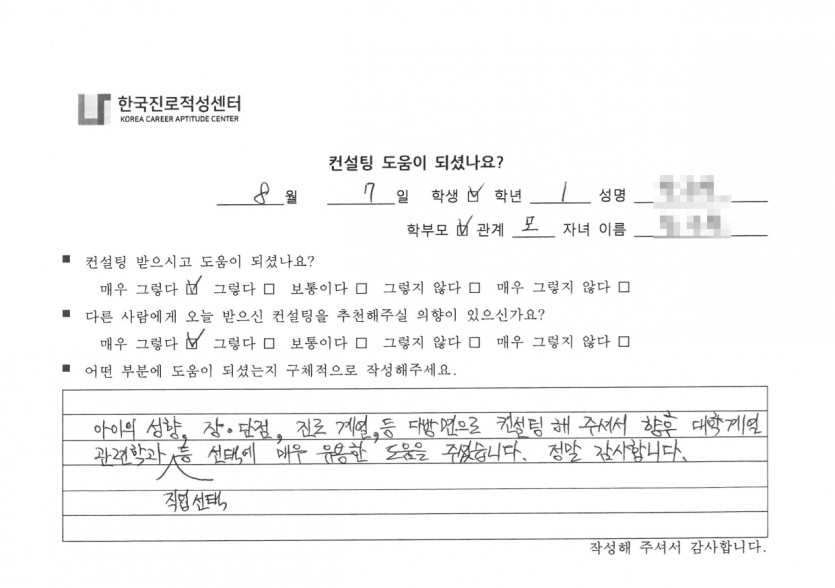 한국진로적성센터
KOREA CAREER APTITUDE CENTER
컨설팅 도움이 되셨나요?
8월 7일 학생 ☑ 학년 1 성명
학부모 ☑ 관계 모 자녀 이름
■ 컨설팅 받으시고 도움이 되셨나요?
매우 그렇다 ☑ 그렇다 □ 보통이다 □ 그렇지 않다 □ 매우 그렇지 않다 □
■ 다른 사람에게 오늘 받으신 컨설팅을 추천해주실 의향이 있으신가요?
매우 그렇다 ☑ 그렇다 □ 보통이다 □ 그렇지 않다 □ 매우 그렇지 않다 □
■ 어떤 부분에 도움이 되셨는지 구체적으로 작성해주세요.
아이의 성향, 장·단점, 진로 계열, 등 다방면으로 컨설팅 해 주셔서 향후 대학계열
관련학과 등 선택에 매우 유용한 도움을 주었습니다. 정말 감사합니다.
직업선택,
작성해 주셔서 감사합니다.